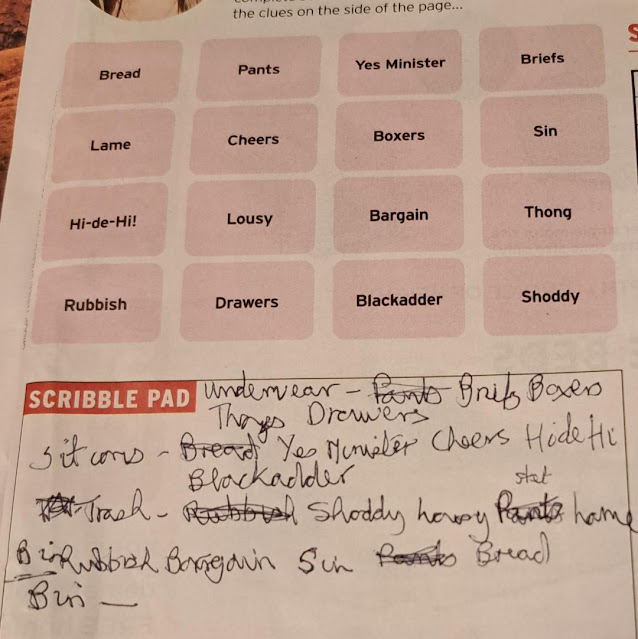 the clues on the side of the page...
Bread Pants Yes Minister Briefs
Lame Cheers Boxers Sin
Hi-de-Hi! Lousy Bargain Thong
Rubbish Drawers Blackadder Shoddy
SCRIBBLE PAD Underwear - Pants Briefs Boxers
Thongs Drawers
Sitcoms - Bread Yes Minister Cheers HideHi
Blackadder
stet
Trash - Rubbish Shoddy Lousy Pants Lame
Bin Rubbish Bargain Sin Pants Bread
Bin -